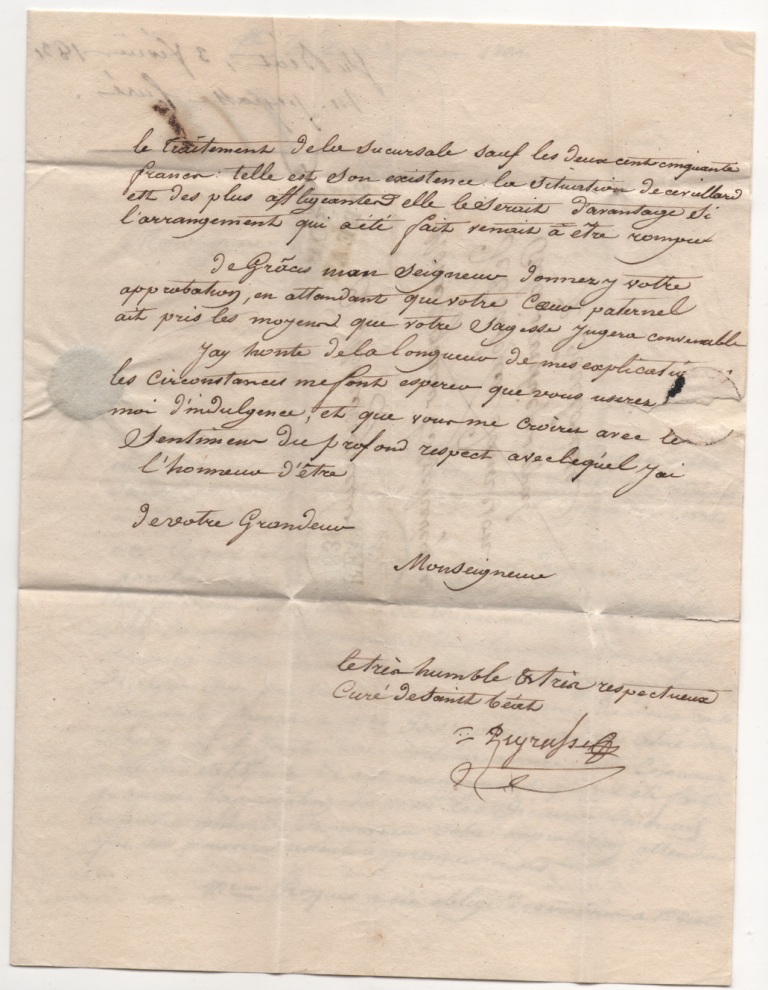 le traitement de la sucursale sauf les deux cent cinquante
francs: telle est son existence: la situation de ce viellard
est des plus affligeantes elle le serait d'avantage si
l'arrangement qui a été fait venait à être rompu
de Grâces mon seigneur donnez y votre
approbation, en attandant que votre Cœur paternel
ait pris les moyens que votre sagesse jugera convenable
J'ay honte de la longueur de mes explications
les circonstances me font esperer que vous userez
moi d'indulgence, et que vous me croirez avec le
Sentimens du profond respect avec lequel j'ai
l'honneur d'être
de votre Grandeur
Monseigneur
le très humble & très respectueux
Curé de Saint béat